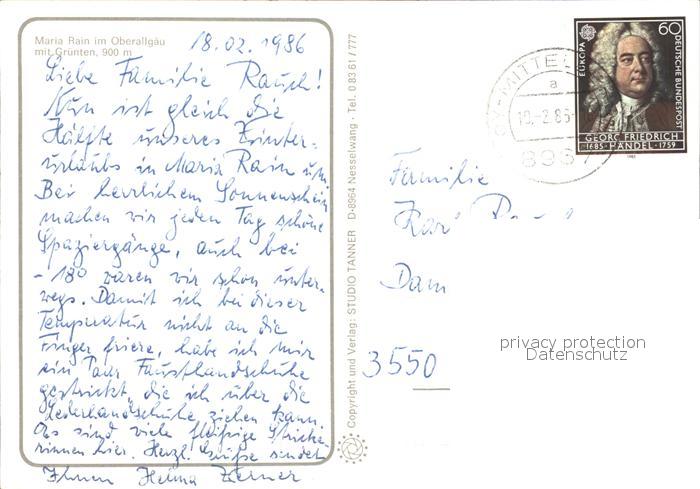 Maria Rain im Oberallgäu
mit Grünten, 900 m
18.02.1986
Liebe Familie Rausch!
Nun ist gleich die
Hälfte unseres Winter-
urlaubs in Maria Rain um.
Bei herrlichem Sonnenschein
machen wir jeden Tag schöne
Spaziergänge, auch bei
- 18° waren wir schon unter-
wegs. Damit ich bei dieser
Temperatur nicht an die
Finger friere, habe ich mir
ein Paar Fausthandschuhe
gestrickt, die ich über die
Lederhandschuhe ziehen kann.
Es sind viele fleißige Stricke-
rinnen hier. Herzl. Grüße sendet
Ihnen Helma
Copyright und Verlag: STUDIO TANNER D-8964 Nesselwang · Tel. 0 83 61 / 777
EUROPA
60
DEUTSCHE BUNDESPOST
GEORG FRIEDRICH
1685 · HÄNDEL · 1759
1985
OY-MITTEL
a
896
Familie
3550
privacy protection
Datenschutz